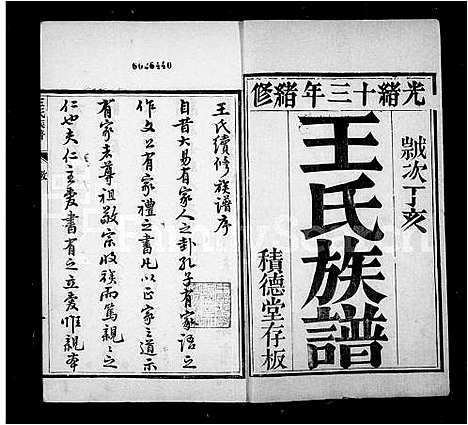 6626440
光緒十三年續修
歲次丁亥
王氏族譜
積德堂存板
王氏續修族譜序
自昔大易有家人之卦孔子有家語之
作文公有家禮之書凡以正家之道示
有家者尊祖敬宗收族而篤親親之
仁也夫仁主愛書有之立愛惟親本